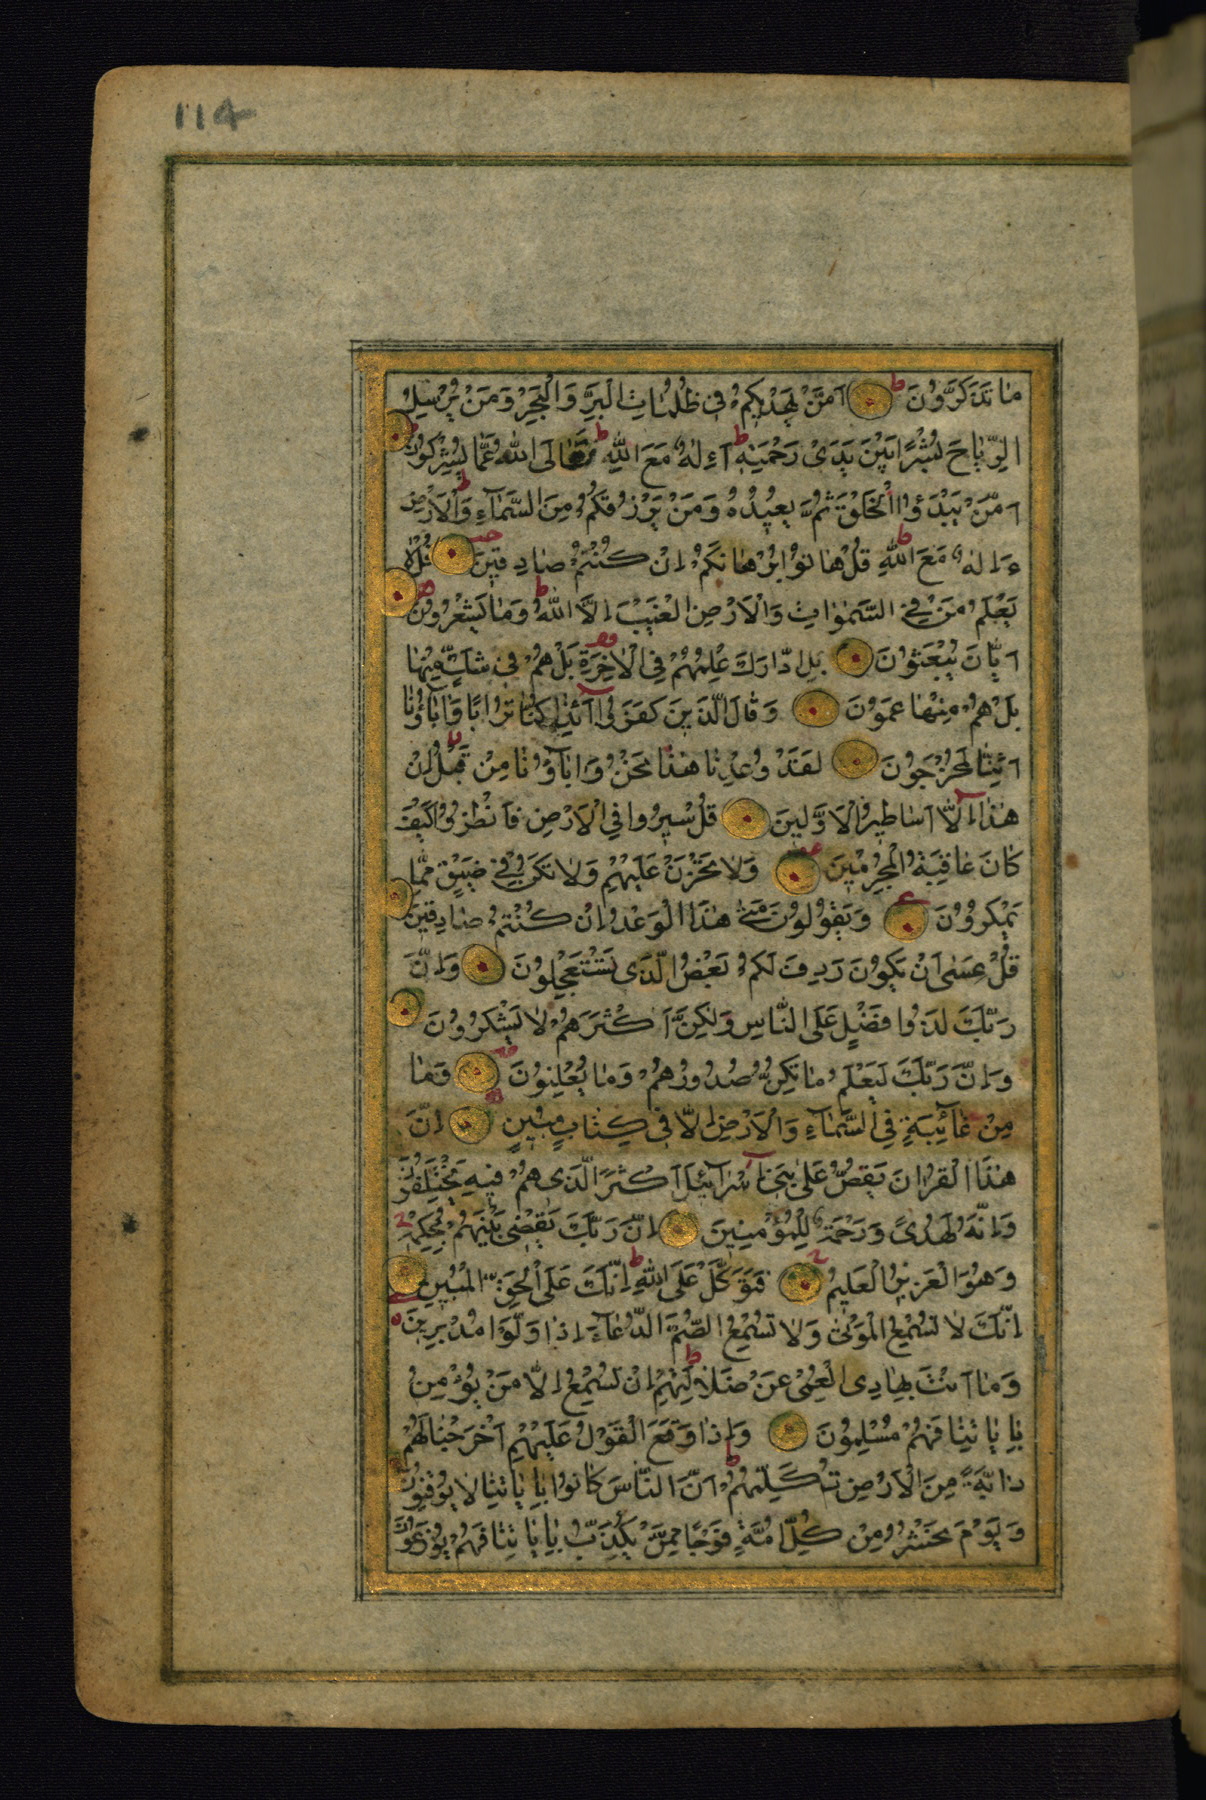 114
مَا تَذَكَّرُونَ اَمَّنْ يَهْدِيكُمْ فِي ظُلُمَاتِ الْبَرِّ وَالْبَحْرِ وَمَنْ يُرْسِلُ
الرِّيَاحَ بُشْرًا بَيْنَ يَدَىْ رَحْمَتِهِ ءَاِلٰهٌ مَعَ اللّٰهِ تَعَالَى اللّٰهُ عَمَّا يُشْرِكُونَ
اَمَّنْ يَبْدَؤُا الْخَلْقَ ثُمَّ يُعِيدُهُ وَمَنْ يَرْزُقُكُمْ مِنَ السَّمَآءِ وَالْاَرْضِ
ءَاِلٰهٌ مَعَ اللّٰهِ قُلْ هَاتُوا بُرْهَانَكُمْ اِنْ كُنْتُمْ صَادِقِينَ قُلْ لَا
يَعْلَمُ مَنْ فِي السَّمٰوَاتِ وَالْاَرْضِ الْغَيْبَ اِلَّا اللّٰهُ وَمَا يَشْعُرُونَ
اَيَّانَ يُبْعَثُونَ بَلِ ادَّارَكَ عِلْمُهُمْ فِي الْاٰخِرَةِ بَلْ هُمْ فِي شَكٍّ مِنْهَا
بَلْ هُمْ مِنْهَا عَمُونَ وَقَالَ الَّذِينَ كَفَرُوا اَئِذَا كُنَّا تُرَابًا وَاٰبَآؤُنَا
اَئِنَّا لَمُخْرَجُونَ لَقَدْ وُعِدْنَا هٰذَا نَحْنُ وَاٰبَآؤُنَا مِنْ قَبْلُ اِنْ
هٰذَا اِلَّا اَسَاطِيرُ الْاَوَّلِينَ قُلْ سِيرُوا فِي الْاَرْضِ فَانْظُرُوا كَيْفَ
كَانَ عَاقِبَةُ الْمُجْرِمِينَ وَلَا تَحْزَنْ عَلَيْهِمْ وَلَا تَكُنْ فِي ضَيْقٍ مِمَّا
يَمْكُرُونَ وَيَقُولُونَ مَتٰى هٰذَا الْوَعْدُ اِنْ كُنْتُمْ صَادِقِينَ
قُلْ عَسٰى اَنْ يَكُونَ رَدِفَ لَكُمْ بَعْضُ الَّذِى تَسْتَعْجِلُونَ وَاِنَّ
رَبَّكَ لَذُوا فَضْلٍ عَلَى النَّاسِ وَلٰكِنَّ اَكْثَرَهُمْ لَا يَشْكُرُونَ
وَاِنَّ رَبَّكَ لَيَعْلَمُ مَا تُكِنُّ صُدُورُهُمْ وَمَا يُعْلِنُونَ وَمَا
مِنْ غَآئِبَةٍ فِي السَّمَآءِ وَالْاَرْضِ اِلَّا فِي كِتَابٍ مُبِينٍ اِنَّ
هٰذَا الْقُرْاٰنَ يَقُصُّ عَلٰى بَنِىٓ اِسْرَآئِيلَ اَكْثَرَ الَّذِى هُمْ فِيهِ يَخْتَلِفُونَ
وَاِنَّهُ لَهُدًى وَرَحْمَةٌ لِلْمُؤْمِنِينَ اِنَّ رَبَّكَ يَقْضِى بَيْنَهُمْ بِحُكْمِهِ
وَهُوَ الْعَزِيزُ الْعَلِيمُ فَتَوَكَّلْ عَلَى اللّٰهِ اِنَّكَ عَلَى الْحَقِّ الْمُبِينِ
اِنَّكَ لَا تُسْمِعُ الْمَوْتٰى وَلَا تُسْمِعُ الصُّمَّ الدُّعَآءَ اِذَا وَلَّوْا مُدْبِرِينَ
وَمَا اَنْتَ بِهَادِى الْعُمْىِ عَنْ ضَلَالَتِهِمْ اِنْ تُسْمِعُ اِلَّا مَنْ يُؤْمِنُ
بِاٰيَاتِنَا فَهُمْ مُسْلِمُونَ وَاِذَا وَقَعَ الْقَوْلُ عَلَيْهِمْ اَخْرَجْنَا لَهُمْ
دَآبَّةً مِنَ الْاَرْضِ تُكَلِّمُهُمْ اَنَّ النَّاسَ كَانُوا بِاٰيَاتِنَا لَا يُوقِنُونَ
وَيَوْمَ نَحْشُرُ مِنْ كُلِّ اُمَّةٍ فَوْجًا مِمَّنْ يُكَذِّبُ بِاٰيَاتِنَا فَهُمْ يُوزَعُونَ